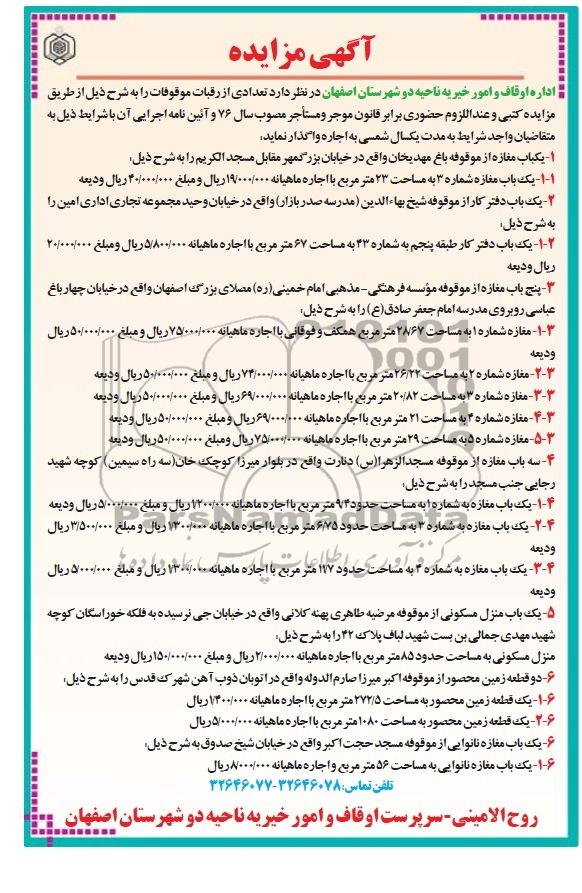 آگهی مزایده
اداره اوقاف و امور خیریه ناحیه دو شهرستان اصفهان در نظر دارد تعدادی از رقبات موقوفات را به شرح ذیل از طریق
مزایده کتبی و عنداللزوم حضوری برابر قانون موجر و مستأجر مصوب سال ۷۶ و آئین نامه اجرایی آن با شرایط ذیل به
متقاضیان واجد شرایط به مدت یکسال شمسی به اجاره واگذار نماید:
۱- یکباب مغازه از موقوفه باغ مهدیخان واقع در خیابان بزرگمهر مقابل مسجد الکریم را به شرح ذیل:
۱-۱- یک باب مغازه شماره ۳ به مساحت ۲۳ متر مربع با اجاره ماهیانه ۱۹/۰۰۰/۰۰۰ ریال و مبلغ ۴۰/۰۰۰/۰۰۰ ریال ودیعه
۲- یک باب دفتر کار از موقوفه شیخ بهاءالدین (مدرسه صدر بازار) واقع در خیابان وحید مجموعه تجاری اداری امین را
به شرح ذیل:
۱-۲- یک باب دفتر کار طبقه پنجم به شماره ۴۳ به مساحت ۶۷ متر مربع با اجاره ماهیانه ۵/۸۰۰/۰۰۰ ریال و مبلغ ۲۰/۰۰۰/۰۰۰
ریال ودیعه
۳- پنج باب مغازه از موقوفه مؤسسه فرهنگی-مذهبی امام خمینی(ره) مصلای بزرگ اصفهان واقع در خیابان چهارباغ
عباسی روبروی مدرسه امام جعفر صادق(ع) را به شرح ذیل:
۱-۳- مغازه شماره ۱ به مساحت ۲۸/۶۷ متر مربع همکف و فوقانی با اجاره ماهیانه ۷۵/۰۰۰/۰۰۰ ریال و مبلغ ۵۰/۰۰۰/۰۰۰ ریال
ودیعه
۲-۳- مغازه شماره ۲ به مساحت ۲۶/۲۲ متر مربع با اجاره ماهیانه ۷۴/۰۰۰/۰۰۰ ریال و مبلغ ۵۰/۰۰۰/۰۰۰ ریال ودیعه
۳-۳- مغازه شماره ۳ به مساحت ۲۰/۸۲ متر مربع با اجاره ماهیانه ۶۹/۰۰۰/۰۰۰ ریال و مبلغ ۵۰/۰۰۰/۰۰۰ ریال ودیعه
۴-۳- مغازه شماره ۴ به مساحت ۲۱ متر مربع با اجاره ماهیانه ۶۹/۰۰۰/۰۰۰ ریال و مبلغ ۵۰/۰۰۰/۰۰۰ ریال ودیعه
۵-۳- مغازه شماره ۵ به مساحت ۲۹ متر مربع با اجاره ماهیانه ۷۵/۰۰۰/۰۰۰ ریال و مبلغ ۵۰/۰۰۰/۰۰۰ ریال ودیعه
۴- سه باب مغازه از موقوفه مسجدالزهرا(س) دنارت واقع در بلوار میرزا کوچک خان(سه راه سیمین) کوچه شهید
رجایی جنب مسجد را به شرح ذیل:
۱-۴- یک باب مغازه به شماره ۱ به مساحت حدود ۹/۴ متر مربع با اجاره ماهیانه ۱/۲۰۰/۰۰۰ ریال و مبلغ ۵/۰۰۰/۰۰۰ ریال ودیعه
۲-۴- یک باب مغازه به شماره ۳ به مساحت حدود ۶/۷۵ متر مربع با اجاره ماهیانه ۱/۳۰۰/۰۰۰ ریال و مبلغ ۳/۵۰۰/۰۰۰ ریال
ودیعه
۳-۴- یک باب مغازه به شماره ۴ به مساحت حدود ۱۱/۷ متر مربع با اجاره ماهیانه ۱/۳۰۰/۰۰۰ ریال و مبلغ ۵/۰۰۰/۰۰۰ ریال
ودیعه
۵- یک باب منزل مسکونی از موقوفه مرضیه طاهری پهنه کلانی واقع در خیابان جی نرسیده به فلکه خوراسگان کوچه
شهید مهدی جمالی بن بست شهید لباف پلاک ۴۲ را به شرح ذیل:
منزل مسکونی به مساحت حدود ۸۵ متر مربع با اجاره ماهیانه ۲/۰۰۰/۰۰۰ ریال و مبلغ ۱۵۰/۰۰۰/۰۰۰ ریال ودیعه
۶- دو قطعه زمین محصور از موقوفه اکبر میرزا صارم الدوله واقع در اتوبان ذوب آهن شهرک قدس را به شرح ذیل:
۱-۶- یک قطعه زمین محصور به مساحت ۲۷۲/۵ متر مربع با اجاره ماهیانه ۱/۴۰۰/۰۰۰ ریال
۲-۶- یک قطعه زمین محصور به مساحت ۱۰۸۰ متر مربع با اجاره ماهیانه ۵/۰۰۰/۰۰۰ ریال
۶- یک باب مغازه نانوایی از موقوفه مسجد حجت اکبر واقع در خیابان شیخ صدوق به شرح ذیل:
۱-۶- یک باب مغازه نانوایی به مساحت ۵۶ متر مربع و اجاره ماهیانه ۸/۰۰۰/۰۰۰ ریال
تلفن تماس: ۳۲۶۴۶۰۷۸-۳۲۶۴۶۰۷۷
روح الامینی-سرپرست اوقاف و امور خیریه ناحیه دو شهرستان اصفهان
ParsNamadData
مرکز فرآوری اطلاعات پارس نماد داده ها